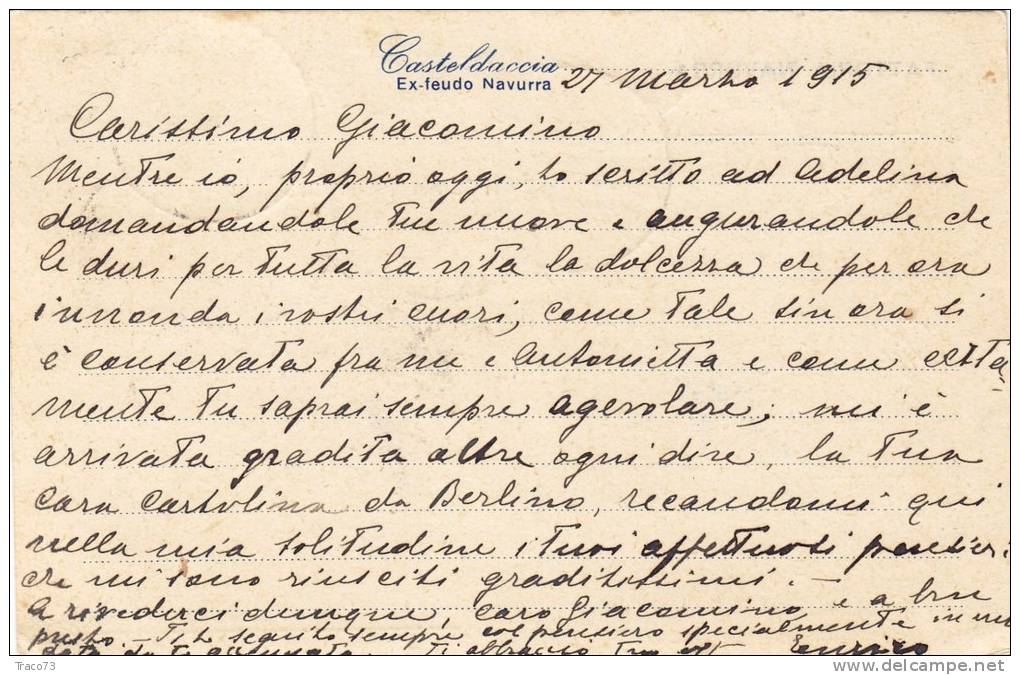 Casteldaccia
Ex-feudo Navurra 27 Marzo 1915
Carissimo Giacomino
Mentre io, proprio oggi, ho scritto ad Adelina
domandandole tue nuove e augurandole che
le duri per tutta la vita la dolcezza che per ora
innonda i vostri cuori, come tale sin ora si
è conservata fra me e Antonietta e come certa-
mente tu saprai sempre agevolare; mi è
arrivata gradita oltre ogni dire, la tua
cara cartolina da Berlino, recandomi qui
nella mia solitudine i tuoi affettuosi pensieri
che mi sono riusciti graditissimi. —
A rivederci dunque, caro Giacomino e a ben
presto. — Ti ho seguito sempre col pensiero specialmente in un
data da te accennata. Ti abbraccio tuo Enrico
Traco73
www.delcampe.net